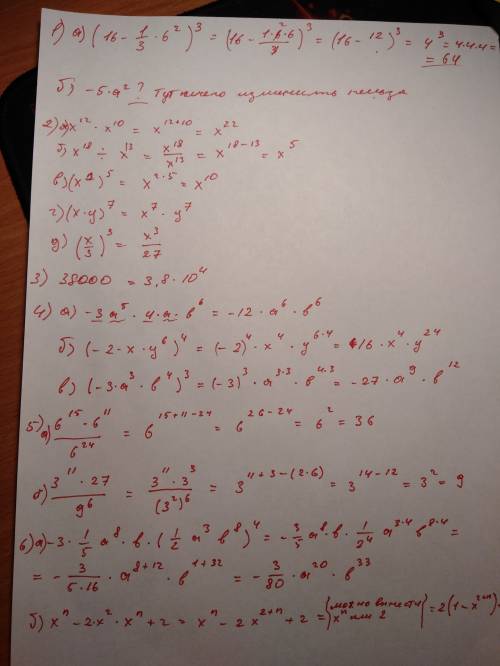 1) а) (16 - 1/3 · 6²)³ = (16 - 1·6·6/3)³ = (16 - 12)³ = 4³ = 4·4·4 =
= 64
б) -5·a² ? Тут ничего изменить нельзя
2) а) x¹² · x¹⁰ = x¹²⁺¹⁰ = x²²
б) x¹⁸ ÷ x¹³ = x¹⁸/x¹³ = x¹⁸⁻¹³ = x⁵
в) (x²)⁵ = x²·⁵ = x¹⁰
г) (x·y)⁷ = x⁷ · y⁷
д) (x/3)³ = x³/27
3) 38000 = 3,8 · 10⁴
4) а) -3a⁵ · 4·a·b⁶ = -12·a⁶·b⁶
б) (-2·x·y⁶)⁴ = (-2)⁴ · x⁴ · y⁶·⁴ = 16·x⁴·y²⁴
в) (-3·a³·b⁴)³ = (-3)³ · a³·³ · b⁴·³ = -27·a⁹·b¹²
5) а) 6¹⁵·6¹¹/6²⁴ = 6¹⁵⁺¹¹⁻²⁴ = 6²⁶⁻²⁴ = 6² = 36
б) 3¹¹·27/9⁶ = 3¹¹·3³/(3²)⁶ = 3¹¹⁺³⁻⁽²·⁶⁾ = 3¹⁴⁻¹² = 3² = 9
6) а) -3·1/5 a⁸·b·(1/2 a³ b⁸)⁴ = -3/5 a⁸·b·1/2⁴ a³·⁴ b⁸·⁴ =
= -3/5·16 · a⁸⁺¹² · b¹⁺³² = -3/80 · a²⁰ · b³³
б) xⁿ - 2·x²·xⁿ + 2 = xⁿ - 2x²⁺ⁿ + 2 = {можно вынести xⁿ или 2} = 2(1 - x²⁺ⁿ)